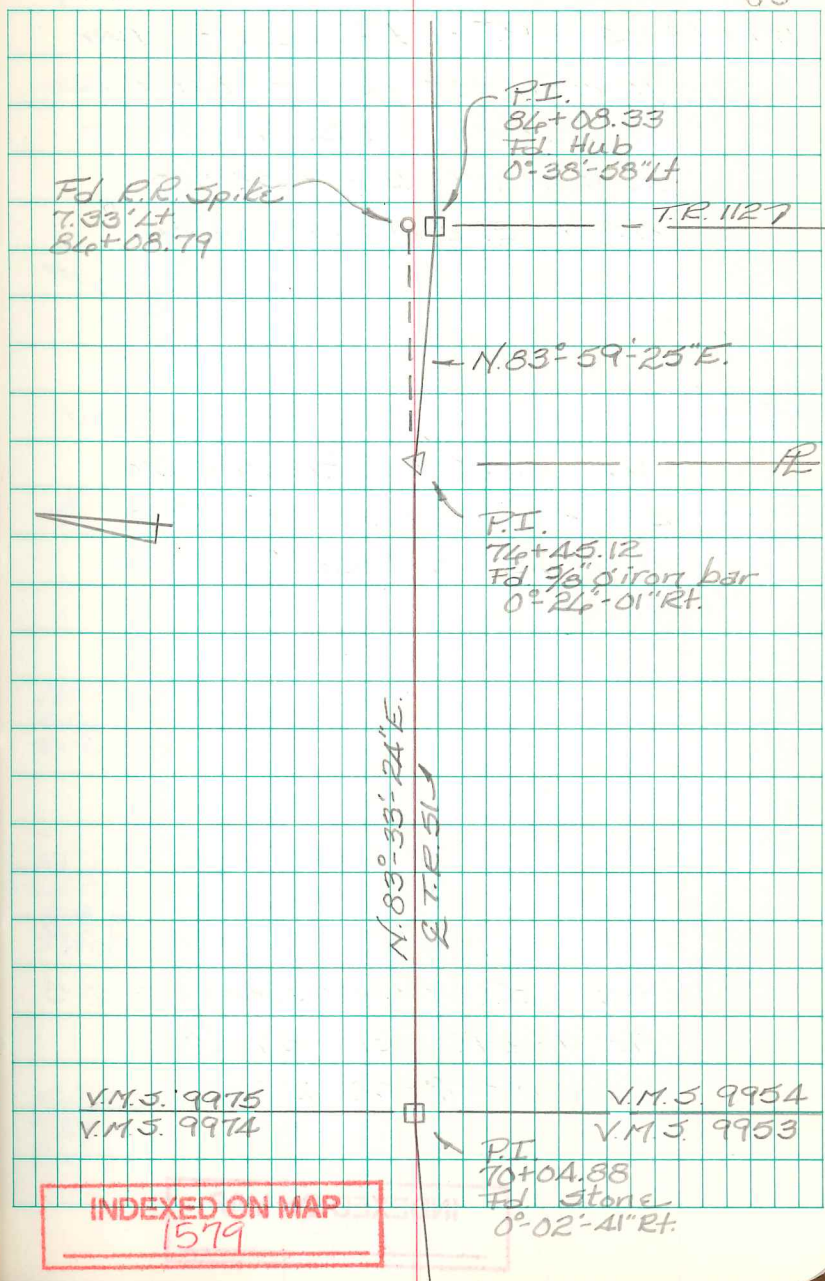 P.I.
86+08.33
Fd. Hub
0°-38'-58"Lt.
Fd R.R. Spike
7.33' Lt
86+08.79
T.R. 1127
N.83°-59'-25"E.
PL
P.I.
76+45.12
Fd 5/8"ø iron bar
0°-26'-01"Rt.
N.83°-33'-24"E.
℄ T.R. 51
V.M.S. 9975
V.M.S. 9974
V.M.S. 9954
V.M.S. 9953
P.I.
70+04.88
Fd Stone
0°-02'-41"Rt.
INDEXED ON MAP
1579